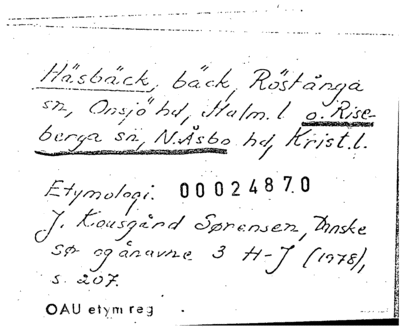 Häsbäck, bäck, Röstånga
sn, Onsjö hd, Malm. l o. Rise-
berga sn, N. Åsbo hd, Krist. l.
Etymologi. 00024870
J. Kousgård Sørensen, Danske
sø- og ånavne 3 H-J (1978),
s. 207.
OAU etym reg